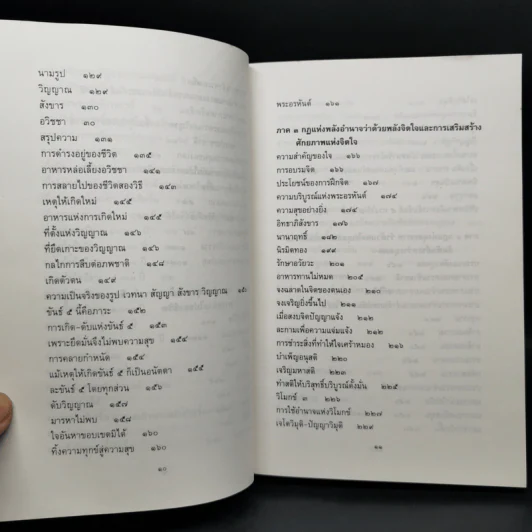 นามรูป ๑๒๙
วิญญาณ ๑๒๙
สังขาร ๑๓๐
อวิชชา ๓๐
สรุปความ ๑๓๑
การดำรงอยู่ของชีวิต ๑๓๕
อาหารหล่อเลี้ยงอวิชชา ๑๔๑
การสลายไปของชีวิตสองวิธี ๑๔๓
เหตุให้เกิดใหม่ ๑๔๕
อาหารแห่งการเกิดใหม่ ๑๔๕
ที่ตั้งแห่งวิญญาณ ๑๔๖
ที่ยึดเกาะของวิญญาณ ๑๔๖
กลไกการสืบต่อภพชาติ ๑๔๘
เกิดตัวตน ๑๔๙
ความเป็นจริงของรูป เวทนา สัญญา สังขาร วิญญาณ
ขันธ์ ๕ นี้คือภาระ ๑๕๒
การเกิด-ดับแห่งขันธ์ ๕ ๑๕๓
เพราะยึดมั่นจึงไม่พบความสุข ๑๕๔
การคลายกำหนัด ๑๕๔
แม้เหตุให้เกิดขันธ์ ๕ ก็เป็นอนัตตา ๑๕๕
ละขันธ์ ๕ โดยทุกส่วน ๑๕๖
ดับวิญญาณ ๑๕๗
มารหาไม่พบ ๑๕๘
ใจอันหาขอบเขตมิได้ ๑๖๐
ทิ้งความทุกข์สู่ความสุข ๑๖๐
๑๐
พระอรหันต์ ๑๖๑
ภาค ๓ กฎแห่งพลังอำนาจว่าด้วยพลังจิตใจและการเสริมสร้าง
ศักยภาพแห่งจิตใจ
ความสำคัญของใจ ๑๖๖
การอบรมจิต ๑๖๖
ประโยชน์ของการฝึกจิต ๑๖๗
ความบริบูรณ์แห่งพระอรหันต์ ๑๗๔
ความสุขอย่างยิ่ง ๑๗๔
อิทธาภิสังขาร ๑๗๖
นานาฤทธิ์ ๑๘๒
นิรมิตทอง ๑๙๙
รักษาอวัยวะ ๒๐๑
อาหารทานไม่หมด ๒๐๕
จงฉลาดในจิตของตนเอง ๒๑๐
จงเจริญยิ่งขึ้นไป ๒๑๑
เมื่อสงบจิตปัญญาแจ้ง ๒๑๒
ละกามเพื่อความแจ่มแจ้ง ๒๑๒
การชำระสิ่งที่ทำให้ใจเศร้าหมอง ๒๑๖
บำเพ็ญอนุสติ ๒๒๐
เจริญมหาสติ ๒๒๑
ทำสติให้บริสุทธิ์บริบูรณ์ตั้งมั่น ๒๒๕
วิโมกข์ ๓ ๒๒๖
การใช้อำนาจแห่งวิโมกข์ ๒๒๗
เจโตวิมุติ-ปัญญาวิมุติ ๒๒๙
๑๑